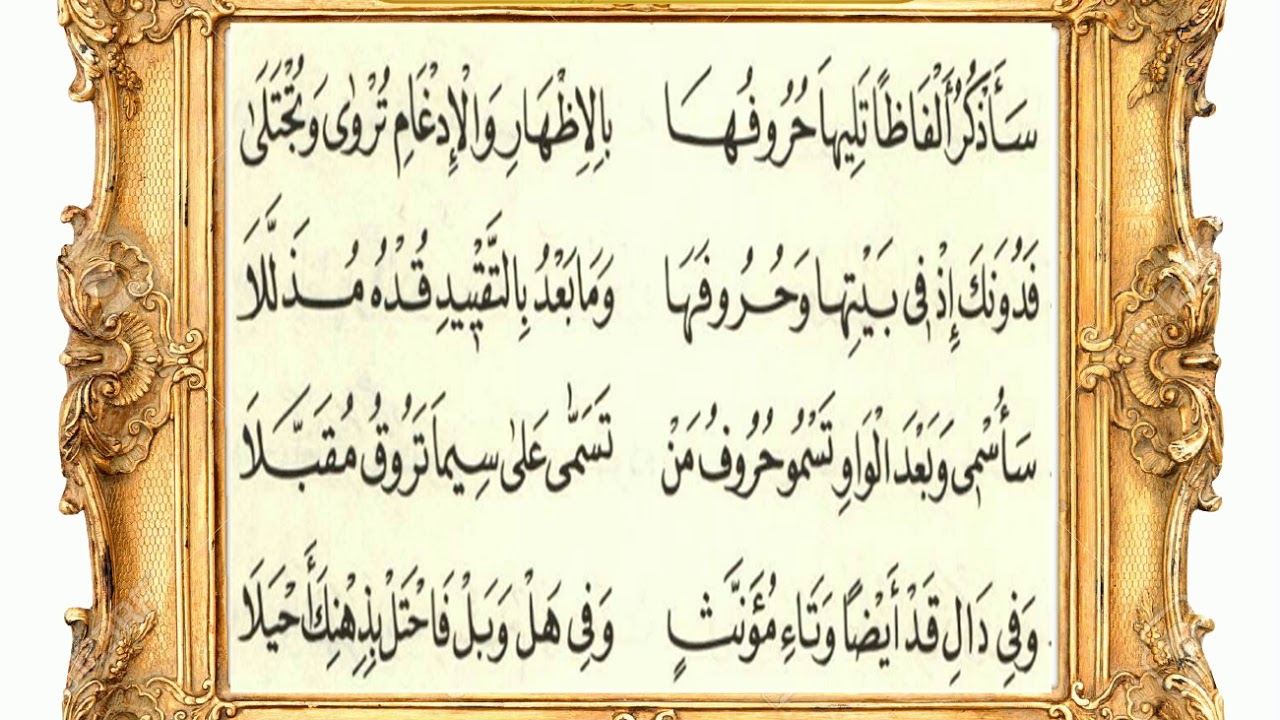 سَأَذْكُرُ أَلْفَاظًا تَلِيهَا حُرُوفُهَا بِالِاظْهَارِ وَالْإِدْغَامِ تُرْوٰى وَتُجْتَلَىٰ
فَدُونَكَ إِذْ فِى بَيْتِهَا وَحُرُوفَهَا وَمَا بَعْدُ بِالتَّقْيِيدِ قُدْهُ مُذَلَّلَا
سَأُسْمِى وَبَعْدَ الْوَاوِ تَسْمُو حُرُوفُ مَنْ تَسَمَّى عَلىٰ سِيمَا تَرُوقُ مُقَبَّلَا
وَفِى دَالِ قَدْ أَيْضًا وَتَاءِ مُؤَنَّثٍ وَفِى هَلْ وَبَلْ فَاحْتَلْ بِذِهْنِكَ أَحْيَلَا